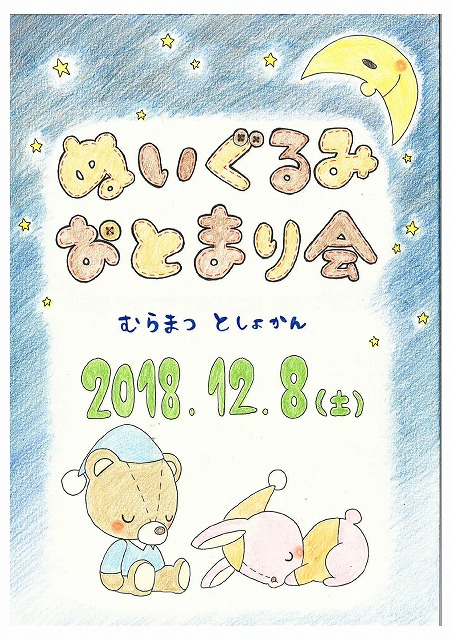 ぬいぐるみ
おとまり会
むらまつ としょかん
2018.12.8(土)